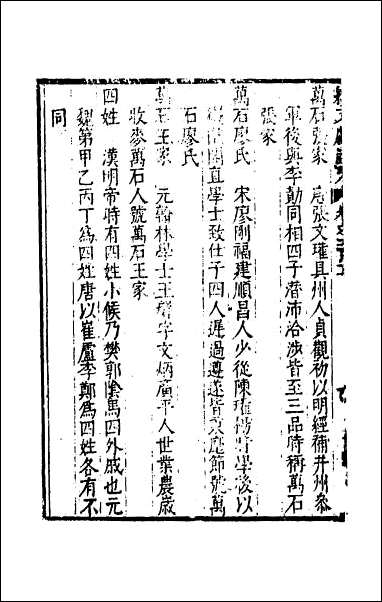 萬石張家　唐張文瓘貝州人貞觀初以明經補并州參
軍後與李勣同相四子潛沛洽涉皆至三品時稱萬石
張家
萬石廖氏　宋廖剛福建順昌人少從陳瓘楊時學後以
學士致仕子四人遲過遵遂皆秉麾節號萬
石廖氏
萬石王家　元翰林學士王字文炳廣平人世業農歲
收麥萬石人號萬石王家
四姓　漢明帝時有四姓小候乃樊郭陰馬四外戚也元
魏第甲乙丙丁為四姓唐以崔盧李鄭為四姓各有不
同